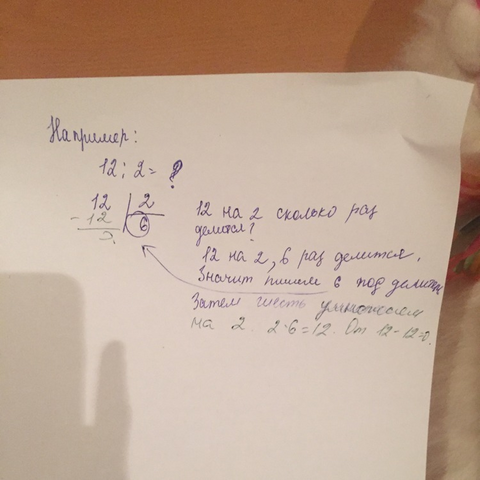 Например:
12 : 2 = ?
12 | 2
- 12 | 6
12 на 2 сколько раз
делится?
12 на 2, 6 раз делится.
Значит пишем 6 под
Затем шесть умножаем
на 2. 2·6=12. От 12-12=0.